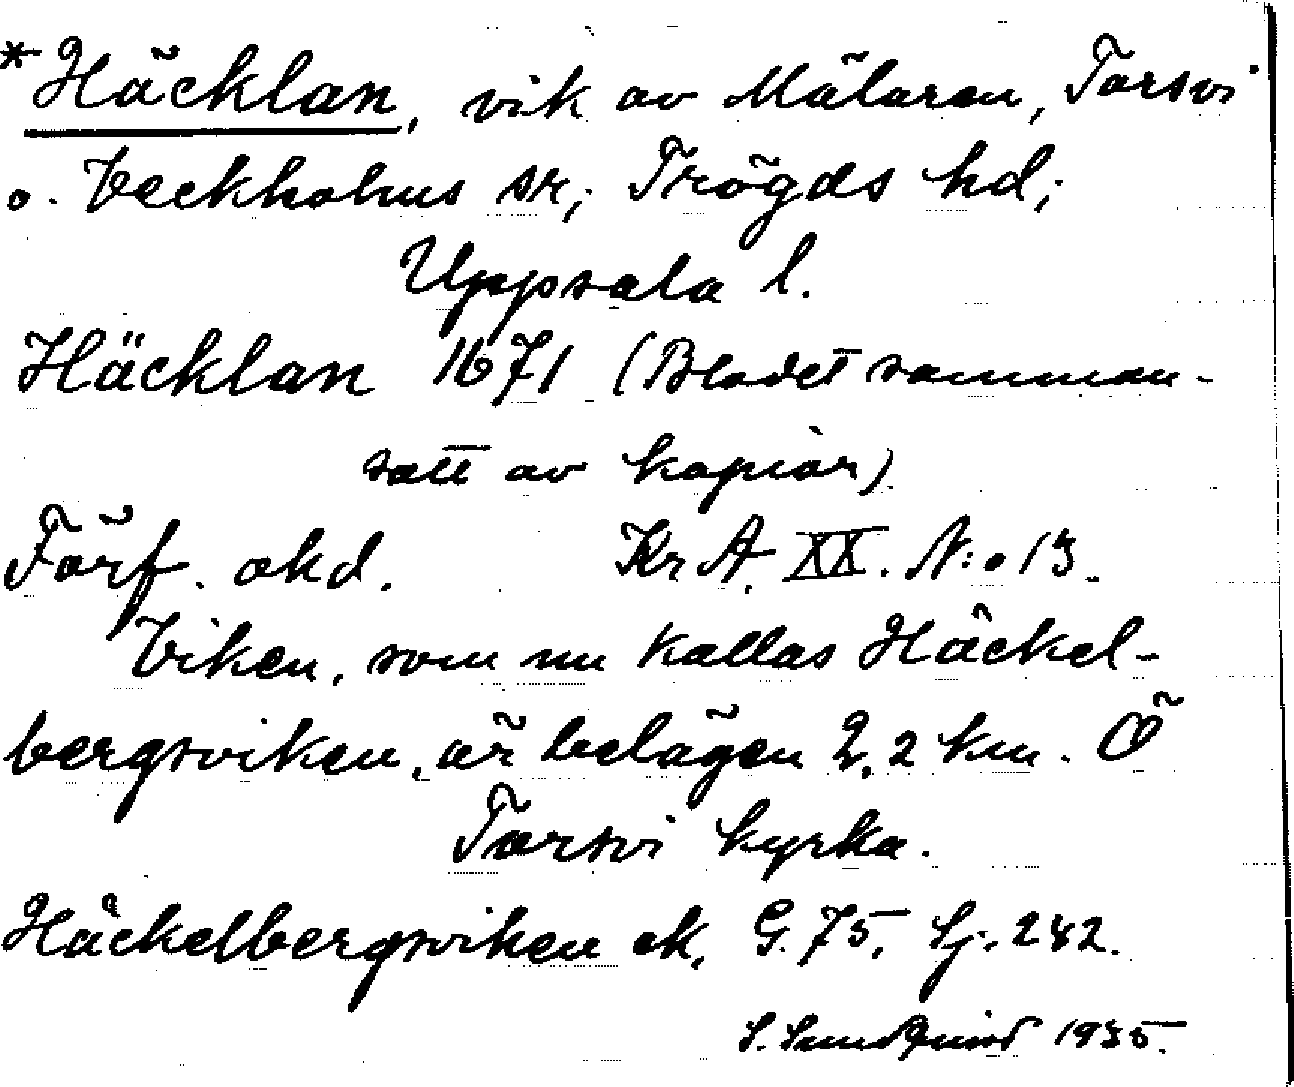 *Häcklan, vik av Mälaren, Torsvi
o. Veckholms sr; Trögds hd;
Uppsala l.
Häcklan 1671 (Bladet samman-
satt av kopior)
Förf. okd. Kr A. XX. N:o 13.
Viken, som nu kallas Häckel-
bergsviken, är belägen 2,2 km. Ö
Torsvi kyrka.
Häckelbergsviken ek. G. 75, Sj. 242.
S. Sundqvist 1935.